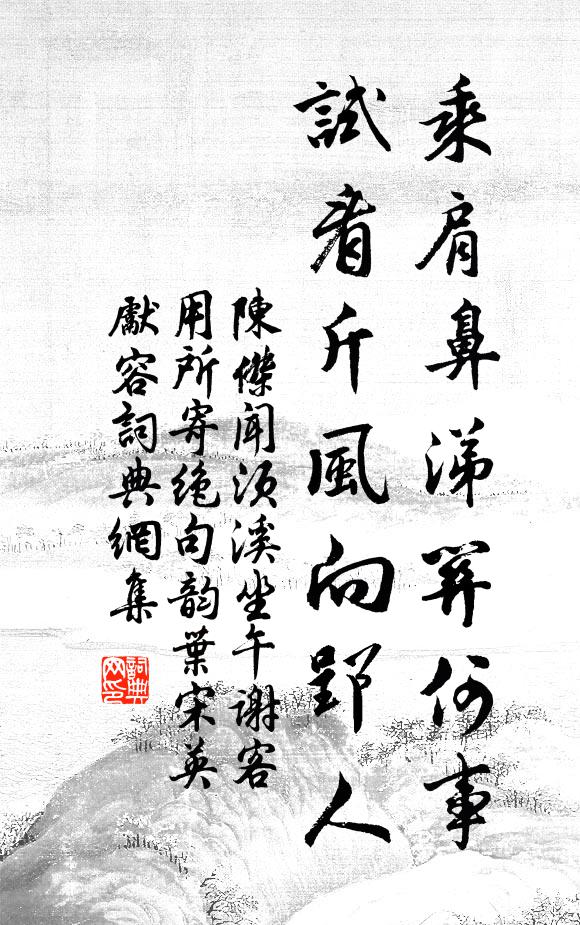 乘肩鼻涕關何事
試看斤風向郢人
陳傑聞須溪坐午謝客
用所寄絕句韻葉宋英
獻容詞典網集
詞典
网印